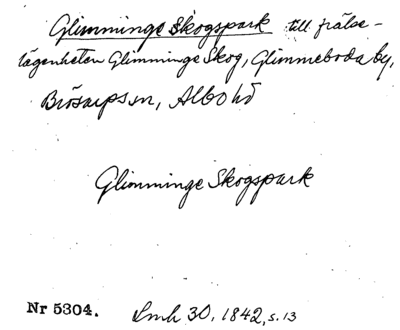 Glimminge Skogspark till frälse-
lägenheten Glimminge Skog, Glimmeboda by,
Brösarps sn, Albo hd
Glimminge Skogspark
Nr 5304. Lmh 30, 1842, s. 13